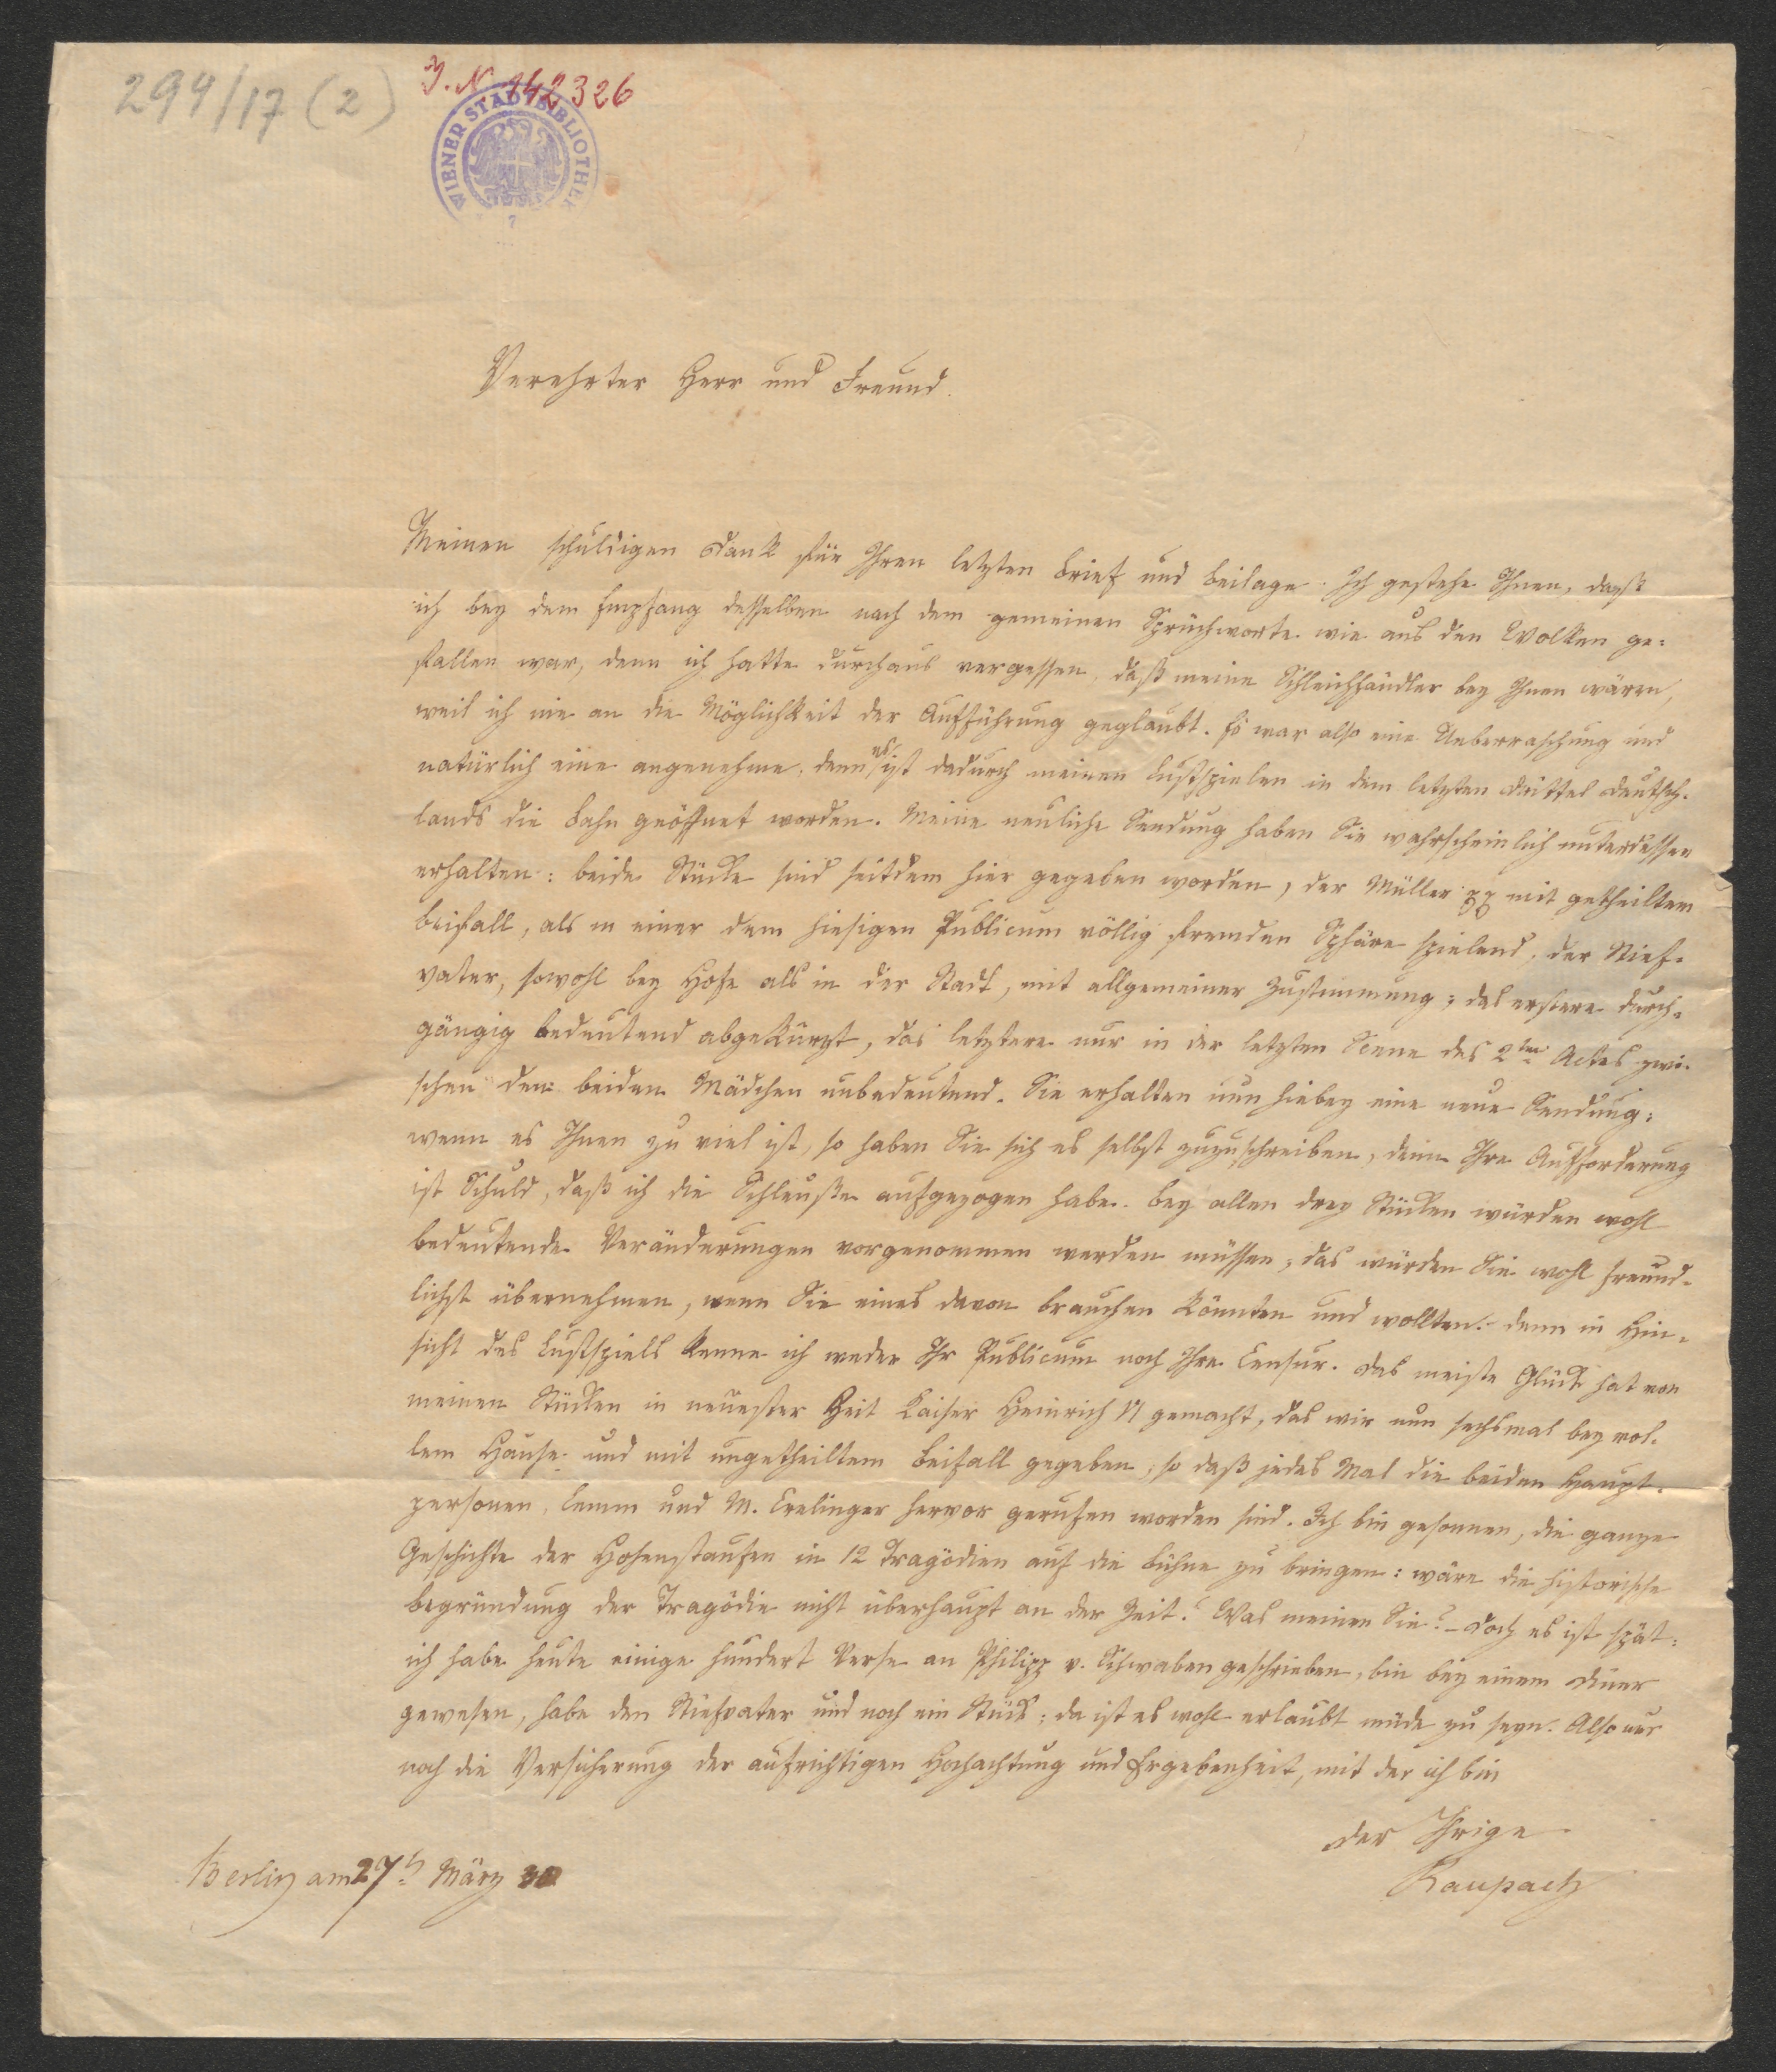 294/17 (2)
J. N. 142326
WIENER STADTBIBLIOTHEK
Verehrter Herr und Freund.
Meinen schuldigen Dank für Ihren letzten Brief und Beilage. Ich gestehe Ihnen, daß
ich bey dem Empfang desselben nach dem gemeinen Sprüchworte wie aus den Wolken ge-
fallen war, denn ich hatte durchaus vergessen, daß meine Schleichhändler bey Ihnen wären,
weil ich nie an die Möglichkeit der Aufführung geglaubt. Es war also eine Ueberraschung und
natürlich eine angenehme, denn es ist dadurch meinen Lustspielen in dem letzten Drittel Deutsch-
lands die Bahn geöffnet worden. Meine neuliche Sendung haben Sie wahrscheinlich unterdessen
erhalten: beide Stücke sind seitdem hier gegeben worden, der Müller pp mit getheiltem
Beifall, als in einer dem hiesigen Publicum völlig fremden Sphäre spielend, der Stief-
vater, sowohl bey Hofe als in der Stadt, mit allgemeiner Zustimmung; das erstere durch-
gängig bedeutend abgekürzt, das letztere nur in der letzten Scene des 2ten Actes zwi-
schen den beiden Mädchen unbedeutend. Sie erhalten nun hiebey eine neue Sendung:
wenn es Ihnen zu viel ist, so haben Sie sich es selbst zuzuschreiben, denn Ihre Aufforderung
ist Schuld, daß ich die Schleuße aufgezogen habe. Bey allen drey Stücken würden wohl
bedeutende Veränderungen vorgenommen werden müssen; das würden Sie wohl freund-
lichst übernehmen, wenn Sie eines davon brauchen könnten und wollten: denn in Hin-
sicht des Lustspiels kenne ich weder Ihr Publicum noch Ihre Censur. Das meiste Glück hat von
meinen Stücken in neuester Zeit Kaiser Heinrich VI gemacht, das wir nun sechsmal bey vol-
lem Hause und mit ungetheiltem Beifall gegeben, so daß jedes Mal die beiden Haupt-
personen, Lemm und M. Crelinger hervor gerufen worden sind. Ich bin gesonnen, die ganze
Geschichte der Hohenstaufen in 12 Tragödien auf die Bühne zu bringen: wäre die historische
Begründung der Tragödie nicht überhaupt an der Zeit? Was meinen Sie? – Doch es ist spät:
ich habe heute einige hundert Verse an Philipp v. Schwaben geschrieben, bin bey einem Diner
gewesen, habe den Stiefvater und noch ein Stück; da ist es wohl erlaubt müde zu seyn. Also nur
noch die Versicherung der aufrichtigen Hochachtung und Ergebenheit, mit der ich bin
der Ihrige
Raupach
Berlin am 27t März 30